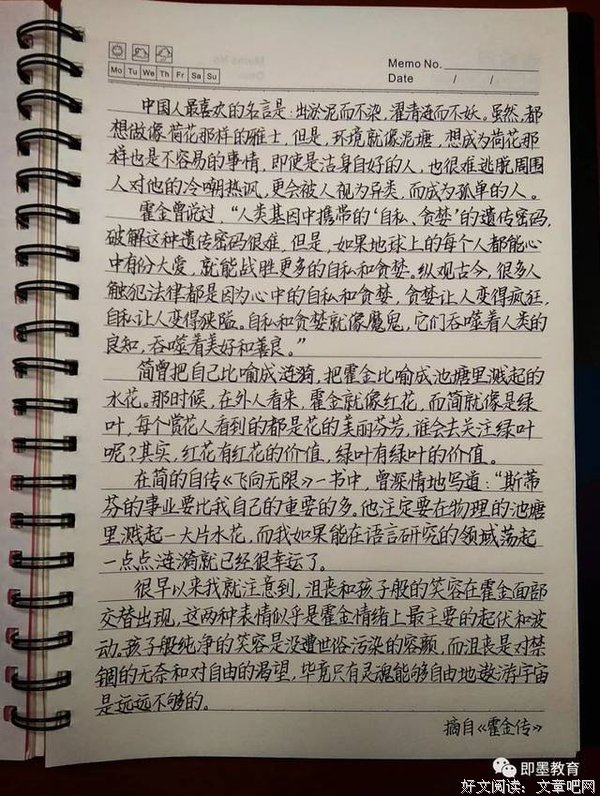 Memo No.
Mo Tu We Th Fr Sa Su
Date / /
中国人最喜欢的名言是：出淤泥而不染，濯清涟而不妖。虽然，都
想做像荷花那样的雅士，但是，环境就像泥塘，想成为荷花那
样也是不容易的事情，即使是洁身自好的人，也很难逃脱周围
人对他的冷嘲热讽，更会被人视为异类，而成为孤单的人。
霍金曾说过，“人类基因中携带的‘自私、贪婪’的遗传密码，
破解这种遗传密码很难，但是，如果地球上的每个人都能心
中有份大爱，就能战胜更多的自私和贪婪。纵观古今，很多人
触犯法律都是因为心中的自私和贪婪，贪婪让人变得疯狂，
自私让人变得狭隘。自私和贪婪就像魔鬼，它们吞噬着人类的
良知，吞噬着美好和善良。”
简曾把自己比喻成涟漪，把霍金比喻成池塘里溅起的
水花。那时候，在外人看来，霍金就像红花，而简就像是绿
叶，每个赏花人看到的都是花的美丽芬芳，谁会去关注绿叶
呢？其实，红花有红花的价值，绿叶有绿叶的价值。
在简的自传《飞向无限》一书中，曾深情地写道：“斯蒂
芬的事业要比我自己的重要的多。他注定要在物理的池塘
里溅起一大片水花，而我如果能在语言研究的领域荡起
一点点涟漪就已经很幸运了。
很早以来我就注意到，沮丧和孩子般的笑容在霍金面部
交替出现，这两种表情似乎是霍金情绪上最主要的起伏和波
动。孩子般纯净的笑容是没遭世俗污染的容颜，而沮丧是对禁
锢的无奈和对自由的渴望，毕竟只有灵魂能够自由地遨游宇宙
是远远不够的。
摘自《霍金传》
即墨教育
好文阅读：文章吧网